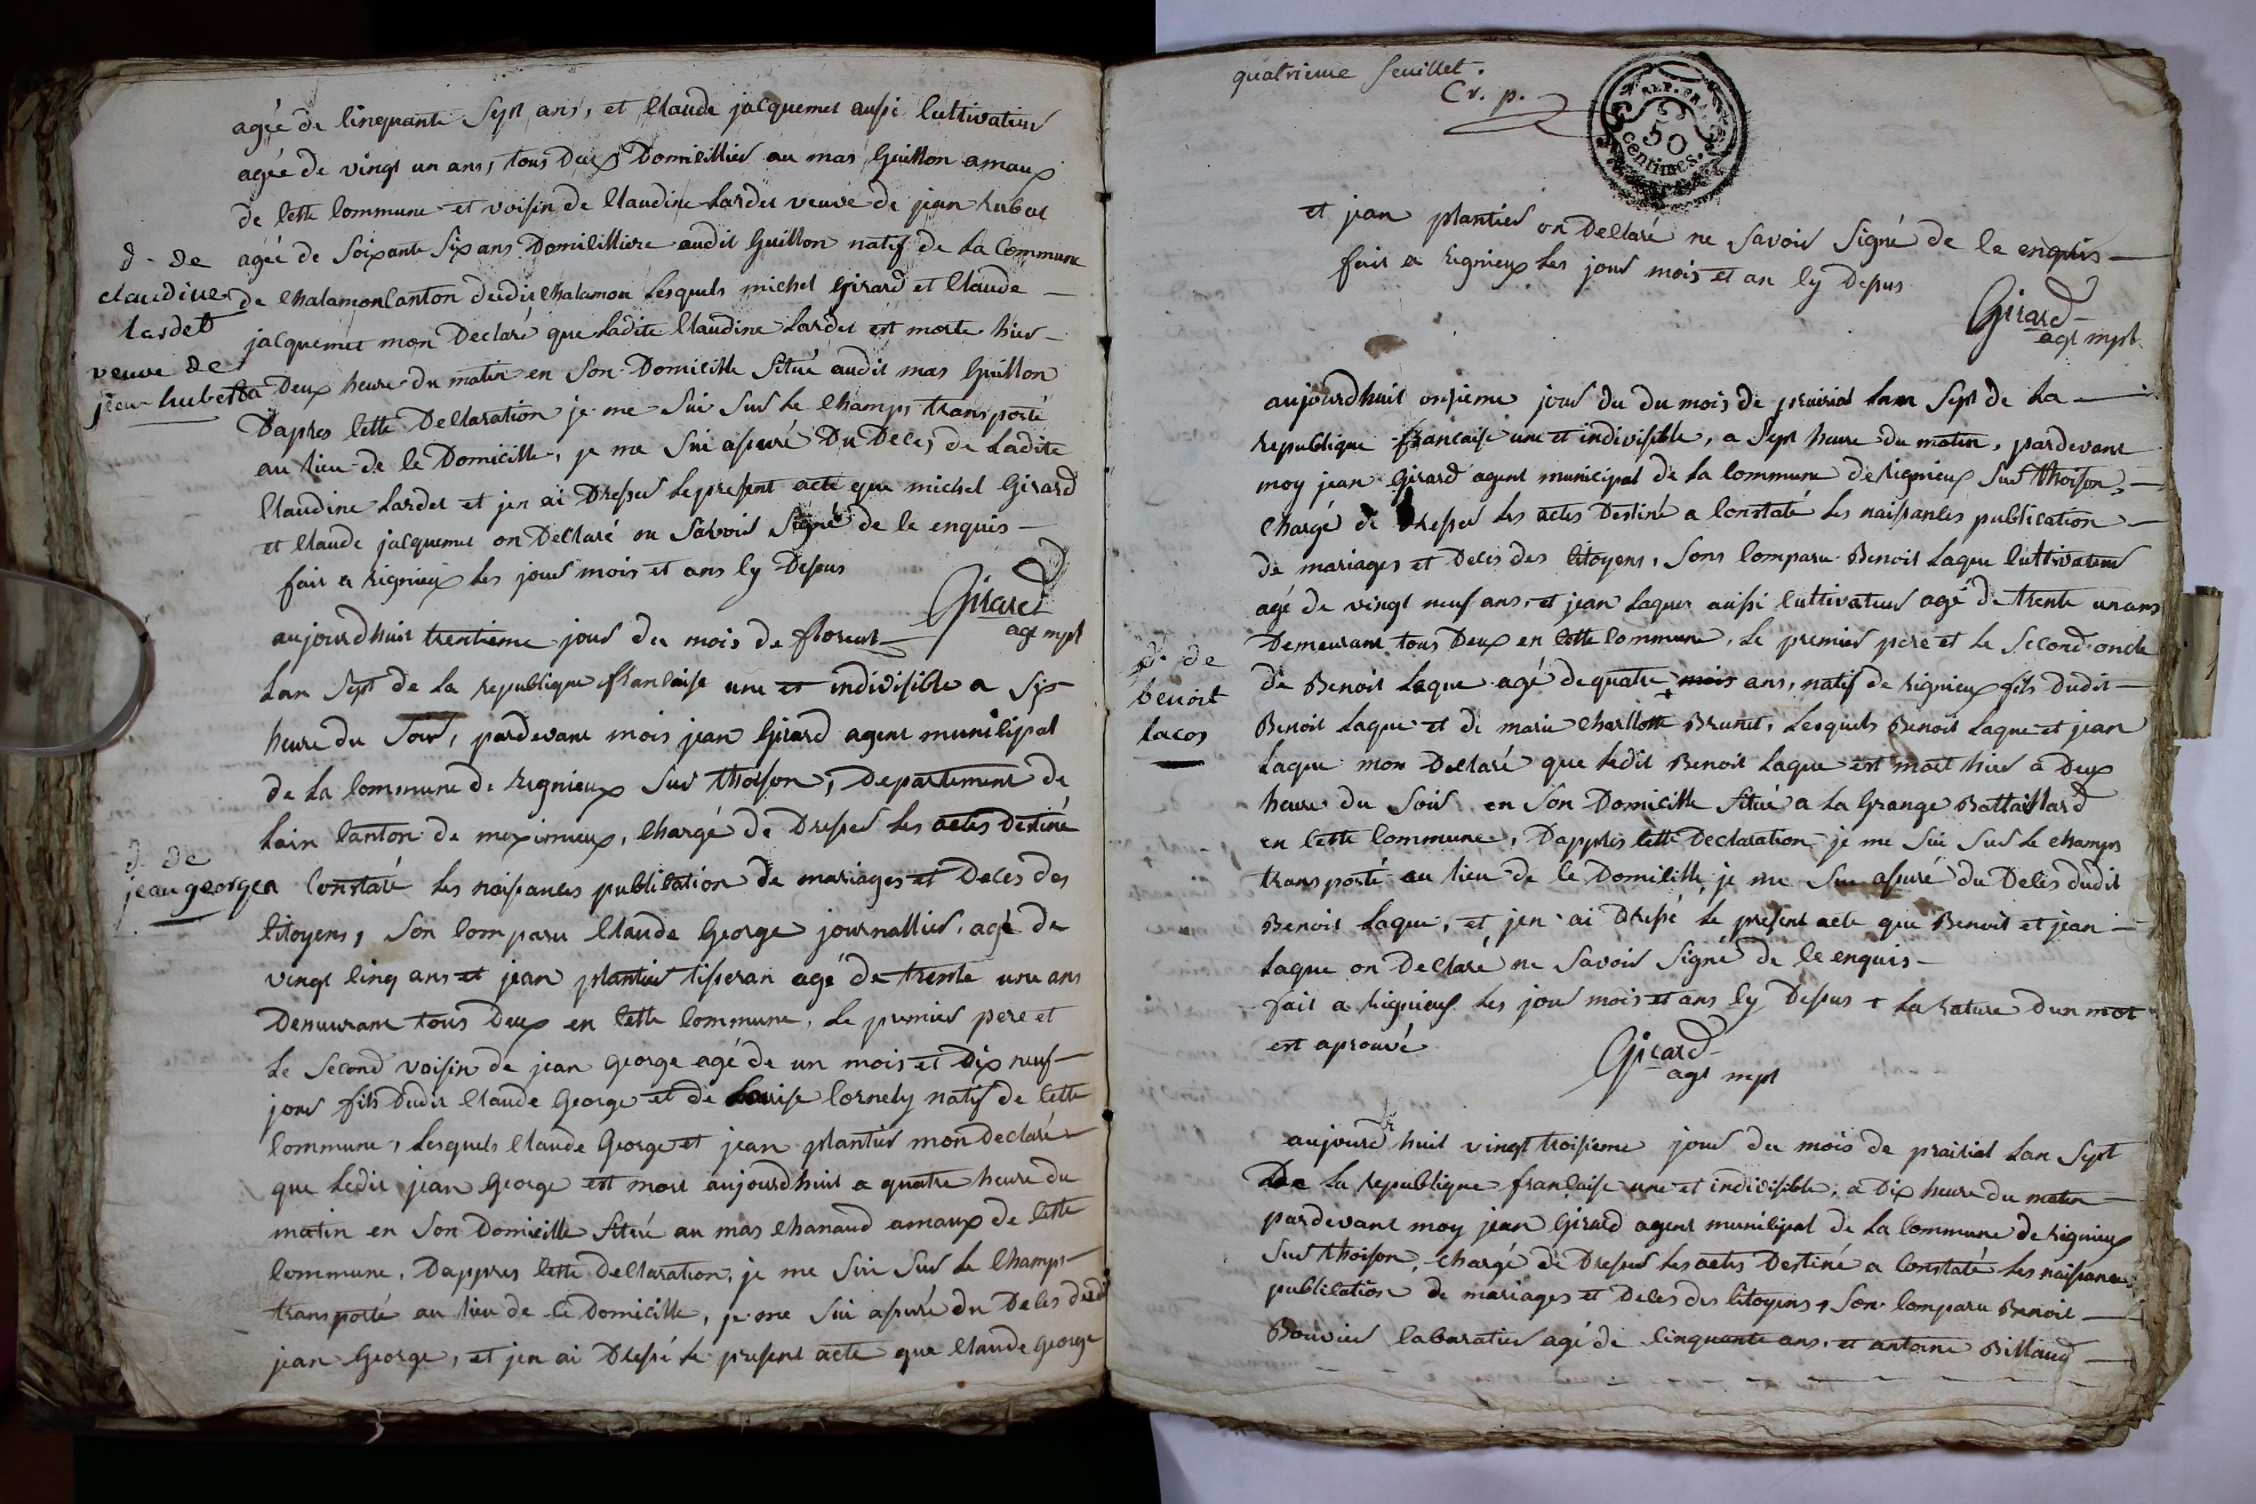 agée de cinquante Sept ans, et Claude jacquemet aussi Cultivateur
agée de vingt un ans, tous Deux Domicilliés au mas Guillon amaux
de Cette Commune et voisin de Claudine Lardet veuve de jean hubet
agée de Soixante Six ans Domicilliere audit Guillon natif de La Commune
d. de
claudine
lardet
veuve de
jean hubet
de Chalamon Canton dudit Chalamon Lesquels michel Girard et Claude
jacquemet mon Declaré que Ladite Claudine Lardet est morte hier
a Deux heure du matin en Son Domicille Situé audit mas Guillon
Dapres Cette Declaration je me Sui Sur Le Champs transporté
au Lieu de Ce Domicille, je me Sui assuré Du Deces de Ladite
Claudine Lardet et jen ai Dresser Le present acte que michel Girard
et Claude jacquemet on Declaré ne Savoir Signé de Ce enquis
fait a rignieux Les jour mois et ans Cy Dessus
Girard
agt mpl
aujourdhuit trentieme jour du mois de floreal
Lan Sept de La republique francaise une et indivisible a Six
heure du Soir, pardevant mois jean Girard agent municipal
de La Commune de rignieux Sur thoison, Departement de
Lain Canton de meximieux, Chargé de Dresser Les actes Destiné
d. de
jean george
a Constaté Les naissances publication de mariages et Deces des
Citoyens, Son Comparu Claude George journallier, agé de
vingt Cinq ans et jean plantier tisseran agé de trente une ans
Demeurant tous Deux en Cette Commune, Le premier pere et
Le Second voisin de jean George agé de un mois et Dix neuf
jour fils Dudit Claude George et de Louise Cornely natif de Cette
Commune, Lesquels Claude George et jean plantier mon Declaré
que Ledit jean George est mort aujourdhuit a quatre heure du
matin en Son Domicille Situé au mas Chanaud amaux de Cette
Commune, Dappres Cette Declaration, je me Sui Sur Le Champs
transporté au Lieu de Ce Domicille, je me Sui assuré du Deces dudit
jean George, et jen ai Dressé Le present acte que Claude George
quatrieme feuillet.
Cr. p.
REP. FRA.
50
centimes.
et jean plantier on Declaré ne Savoir Signé de Ce enquis
fait a rignieux Les jour mois et an Cy Depus
Girard
agt mpl
aujourdhuit onsieme jour du du mois de prairial Lan Sept de La
republique francaise une et indivisible, a Sept heure du matin, pardevant
moy jean Girard agent municipal de La Commune de rignieux Sur thoison,
Chargé de Dresser Les actes Destiné a Constaté Les naissances publication
de mariages et Deces des Citoyens, Sons Comparu Benoit Laque Cultivateur
agé de vingt neuf ans, et jean Laque aussi Cultivateur agé de trente un ans
Demeurant tous Deux en Cette Commune, Le premier pere et Le Second oncle
d. de
benoit
lacos
de Benoit Laque agé de quatre + mois ans, natif de rignieux fils Dudit
Benoit Laque et de marie Charllotte Brunet, Lesquels Benoit Laque et jean
Laque mon Declaré que Ledit Benoit Laque est mort hier a Deux
heure du Soir en Son Domicille Situé a La Grange Battaillard
en Cette Commune, Dappres Cette Declaration je me Sui Sur Le champs
transporté au Lieu de Ce Domicille, je me Sui assuré du Deces dudit
Benoit Laque, et jen ai Dressé Le present acte que Benoit et jean
Laque on Declaré ne Savoir Signé de Ce enquis
fait a rignieux Les jour mois et ans Cy Dessus + La rature dun mot
est aprouvé
Girard
agt mpl
aujourd huit vingt troisieme jour du mois de prairial Lan Sept
De La republique francaise une et indivisible, a Dix heure du matin
pardevant moy jean Girard agent municipal de La Commune de rignieux
Sur thoison, Chargé de Dresser Les actes Destiné a Constaté Les naissances
publication de mariages et Deces des Citoyens, Son Comparu Benoit
Bouvier Cabaratier agé de Cinquante ans, et antoine Billaud